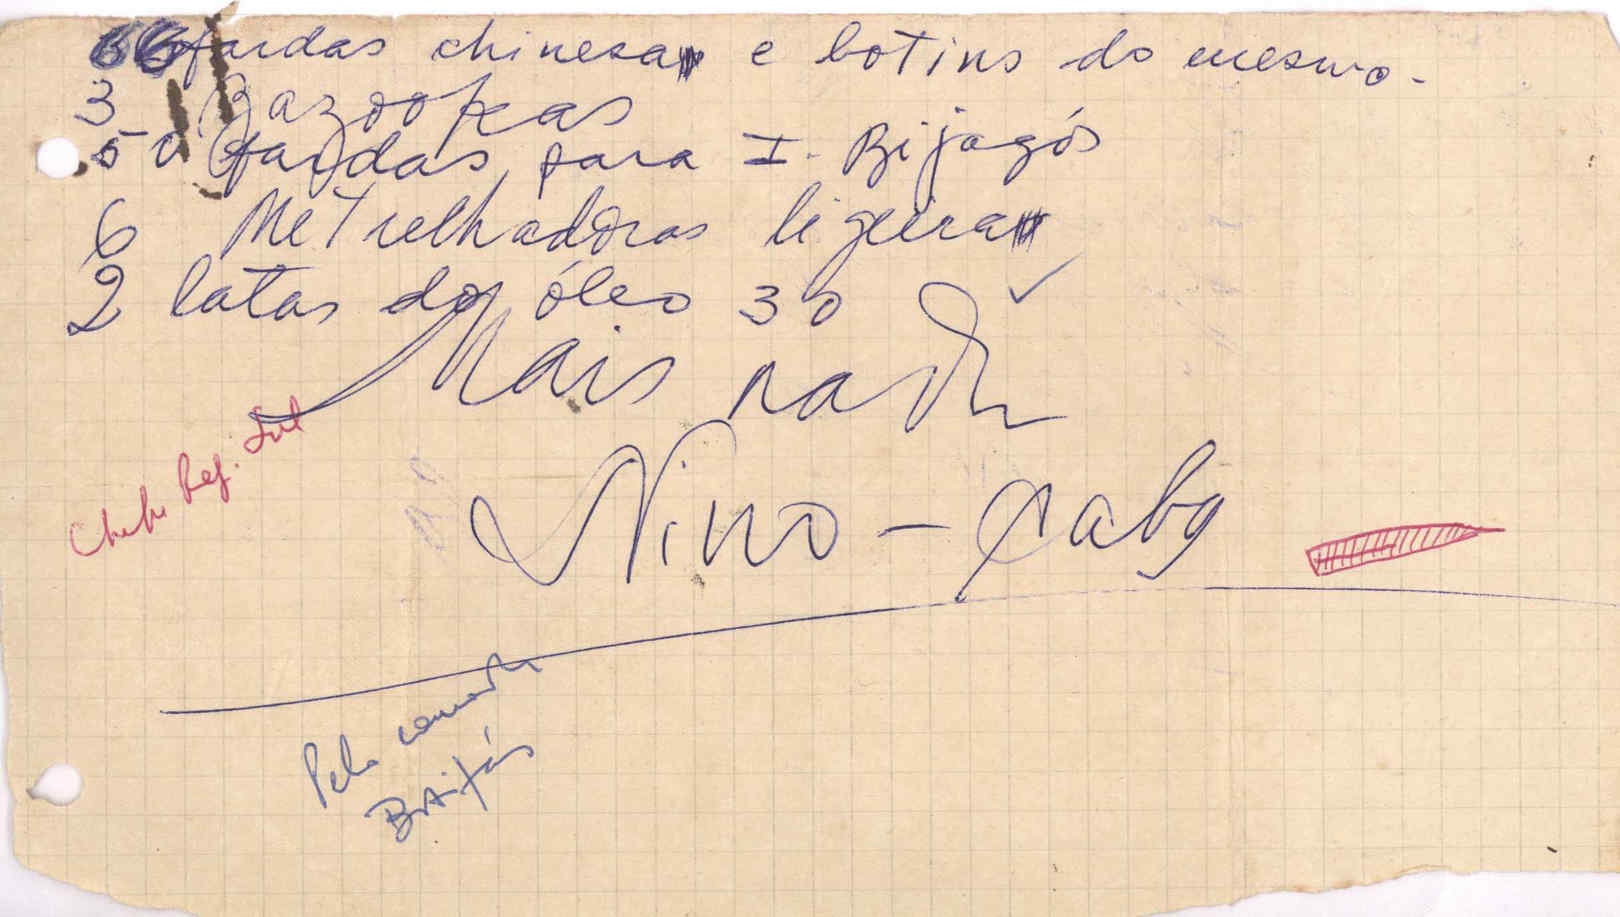 66 fardas chinesas e botins do mesmo.
3 Bazookas
50 fardas para I. Bijagós
6 Metrelhadoras ligeiras
2 latas do óleo 30
Mais nada
Chefe Reg. Sul
Nino - 
Pelo camarada